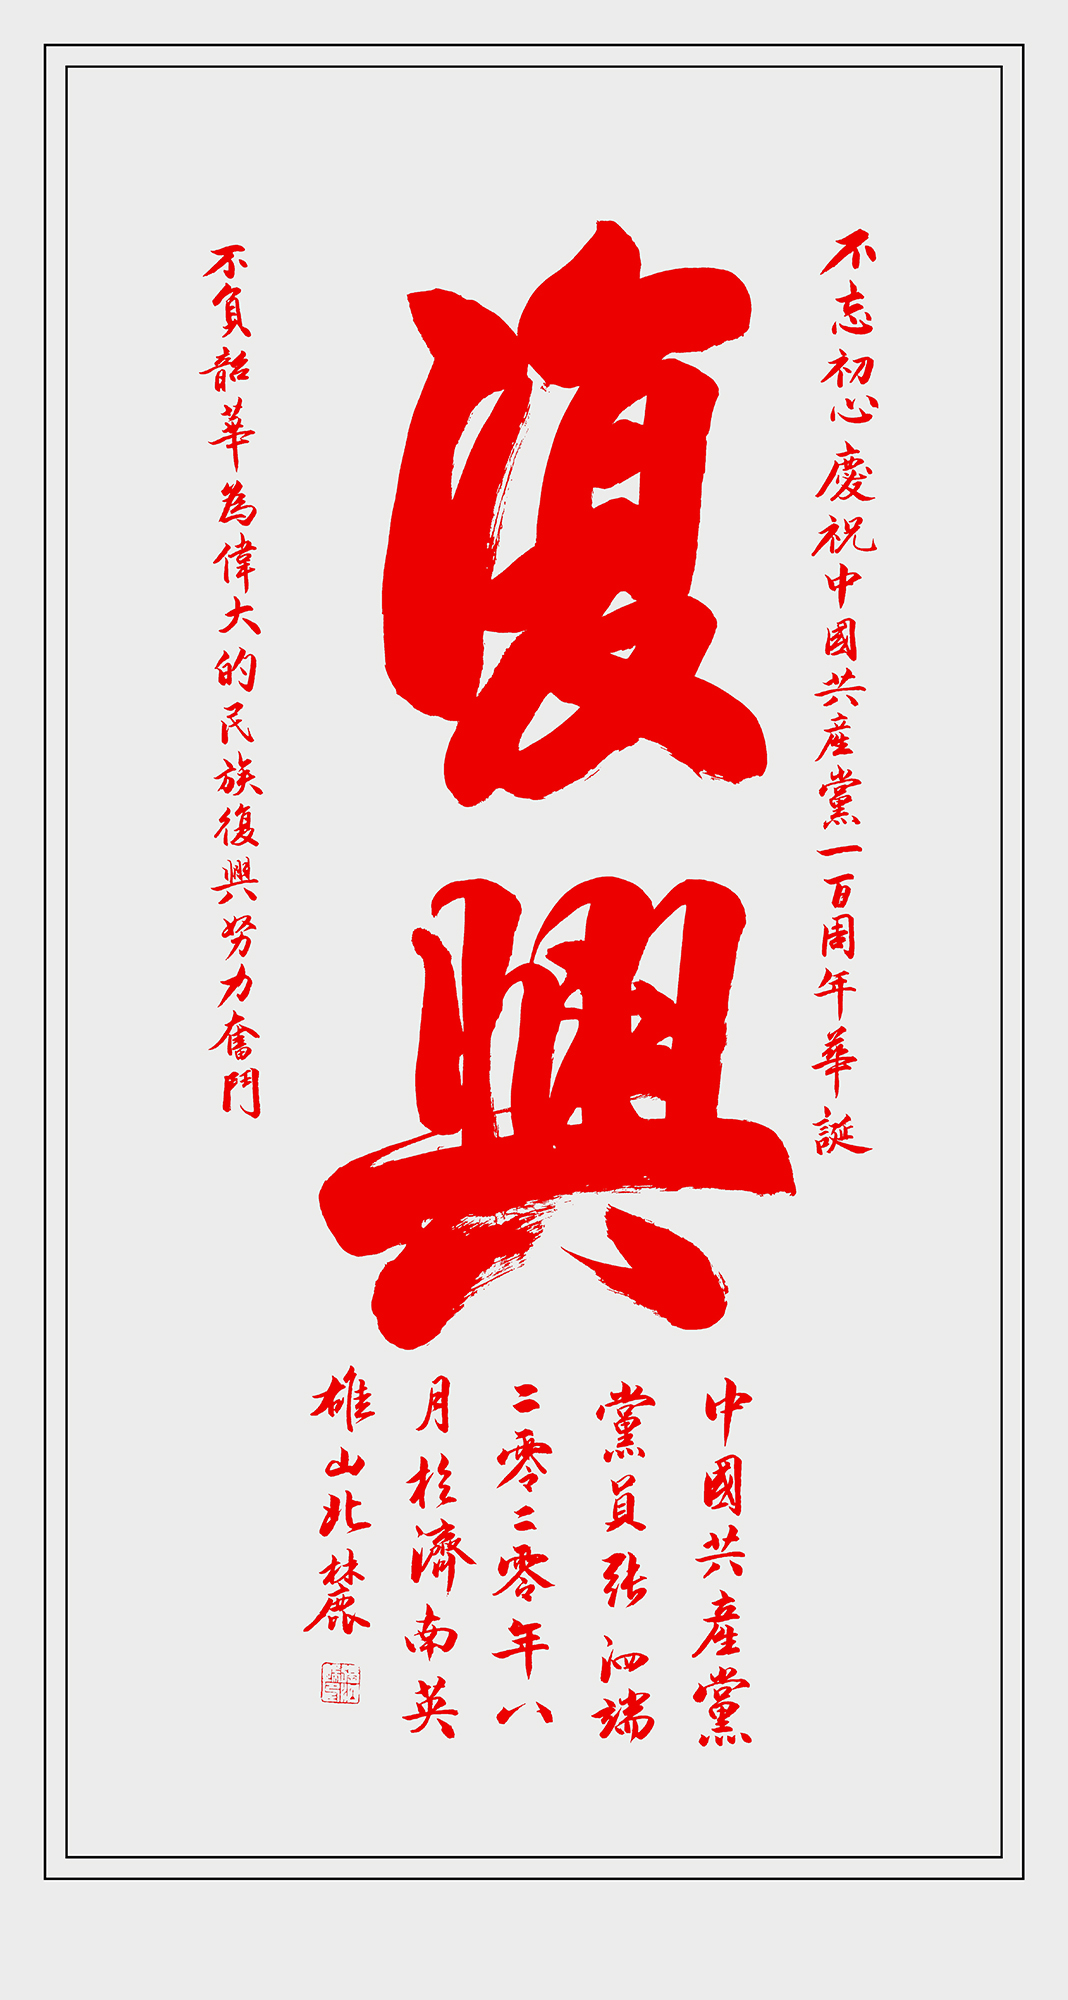 不忘初心慶祝中國共産黨一百周年華誕
復興
不負韶華為偉大的民族復興努力奮鬥
中國共産黨
黨員張泗端
二零二零年八
月於濟南英
雄山北麓